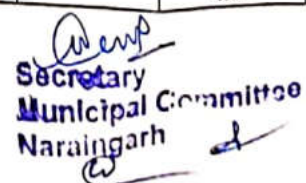 Secretary
Municipal Committee
Naraingarh